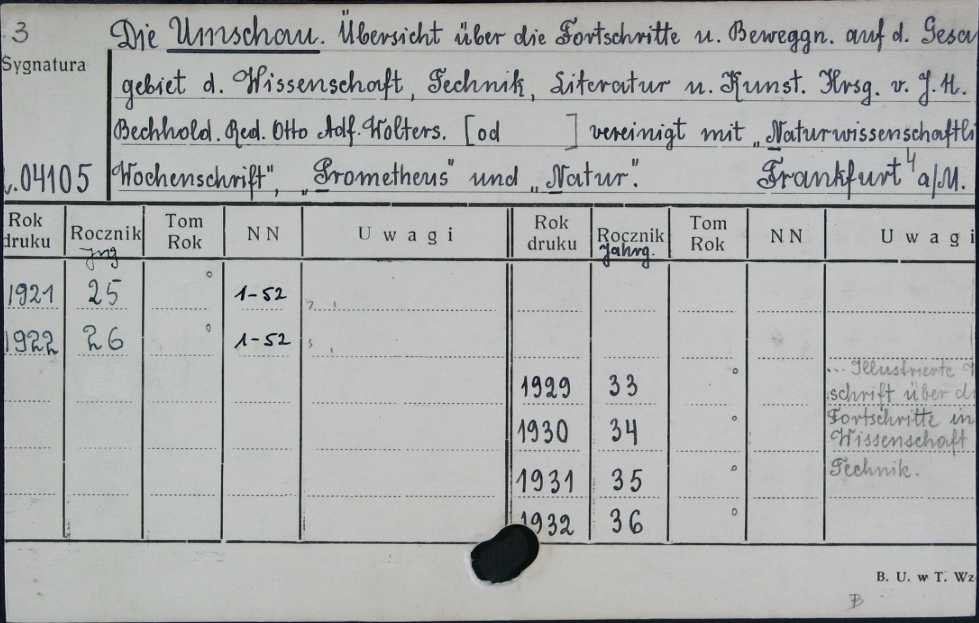 3
Die Umschau. Übersicht über die Fortschritte u. Beweggn. auf d. Gesa
Sygnatura
gebiet d. Wissenschaft, Technik, Literatur u. Kunst. Hrsg. v. J. H.
Bechhold. Red. Otto Adf. Wolters. [od ] vereinigt mit „Naturwissenschaftli
04105 Wochenschrift", „Prometheus" und „Natur". Frankfurt 4 a/M.
Rok druku Rocznik Jrg Tom Rok NN Uwagi Rok druku Rocznik Jahrg. Tom Rok NN Uwagi
1921 25 ° 1-52
1922 26 ° 1-52
1929 33 ° ... Illustrierte
schrift über d
1930 34 ° Fortschritte in
Wissenschaft
1931 35 ° Technik.
1932 36 °
B. U. w T. Wz
B